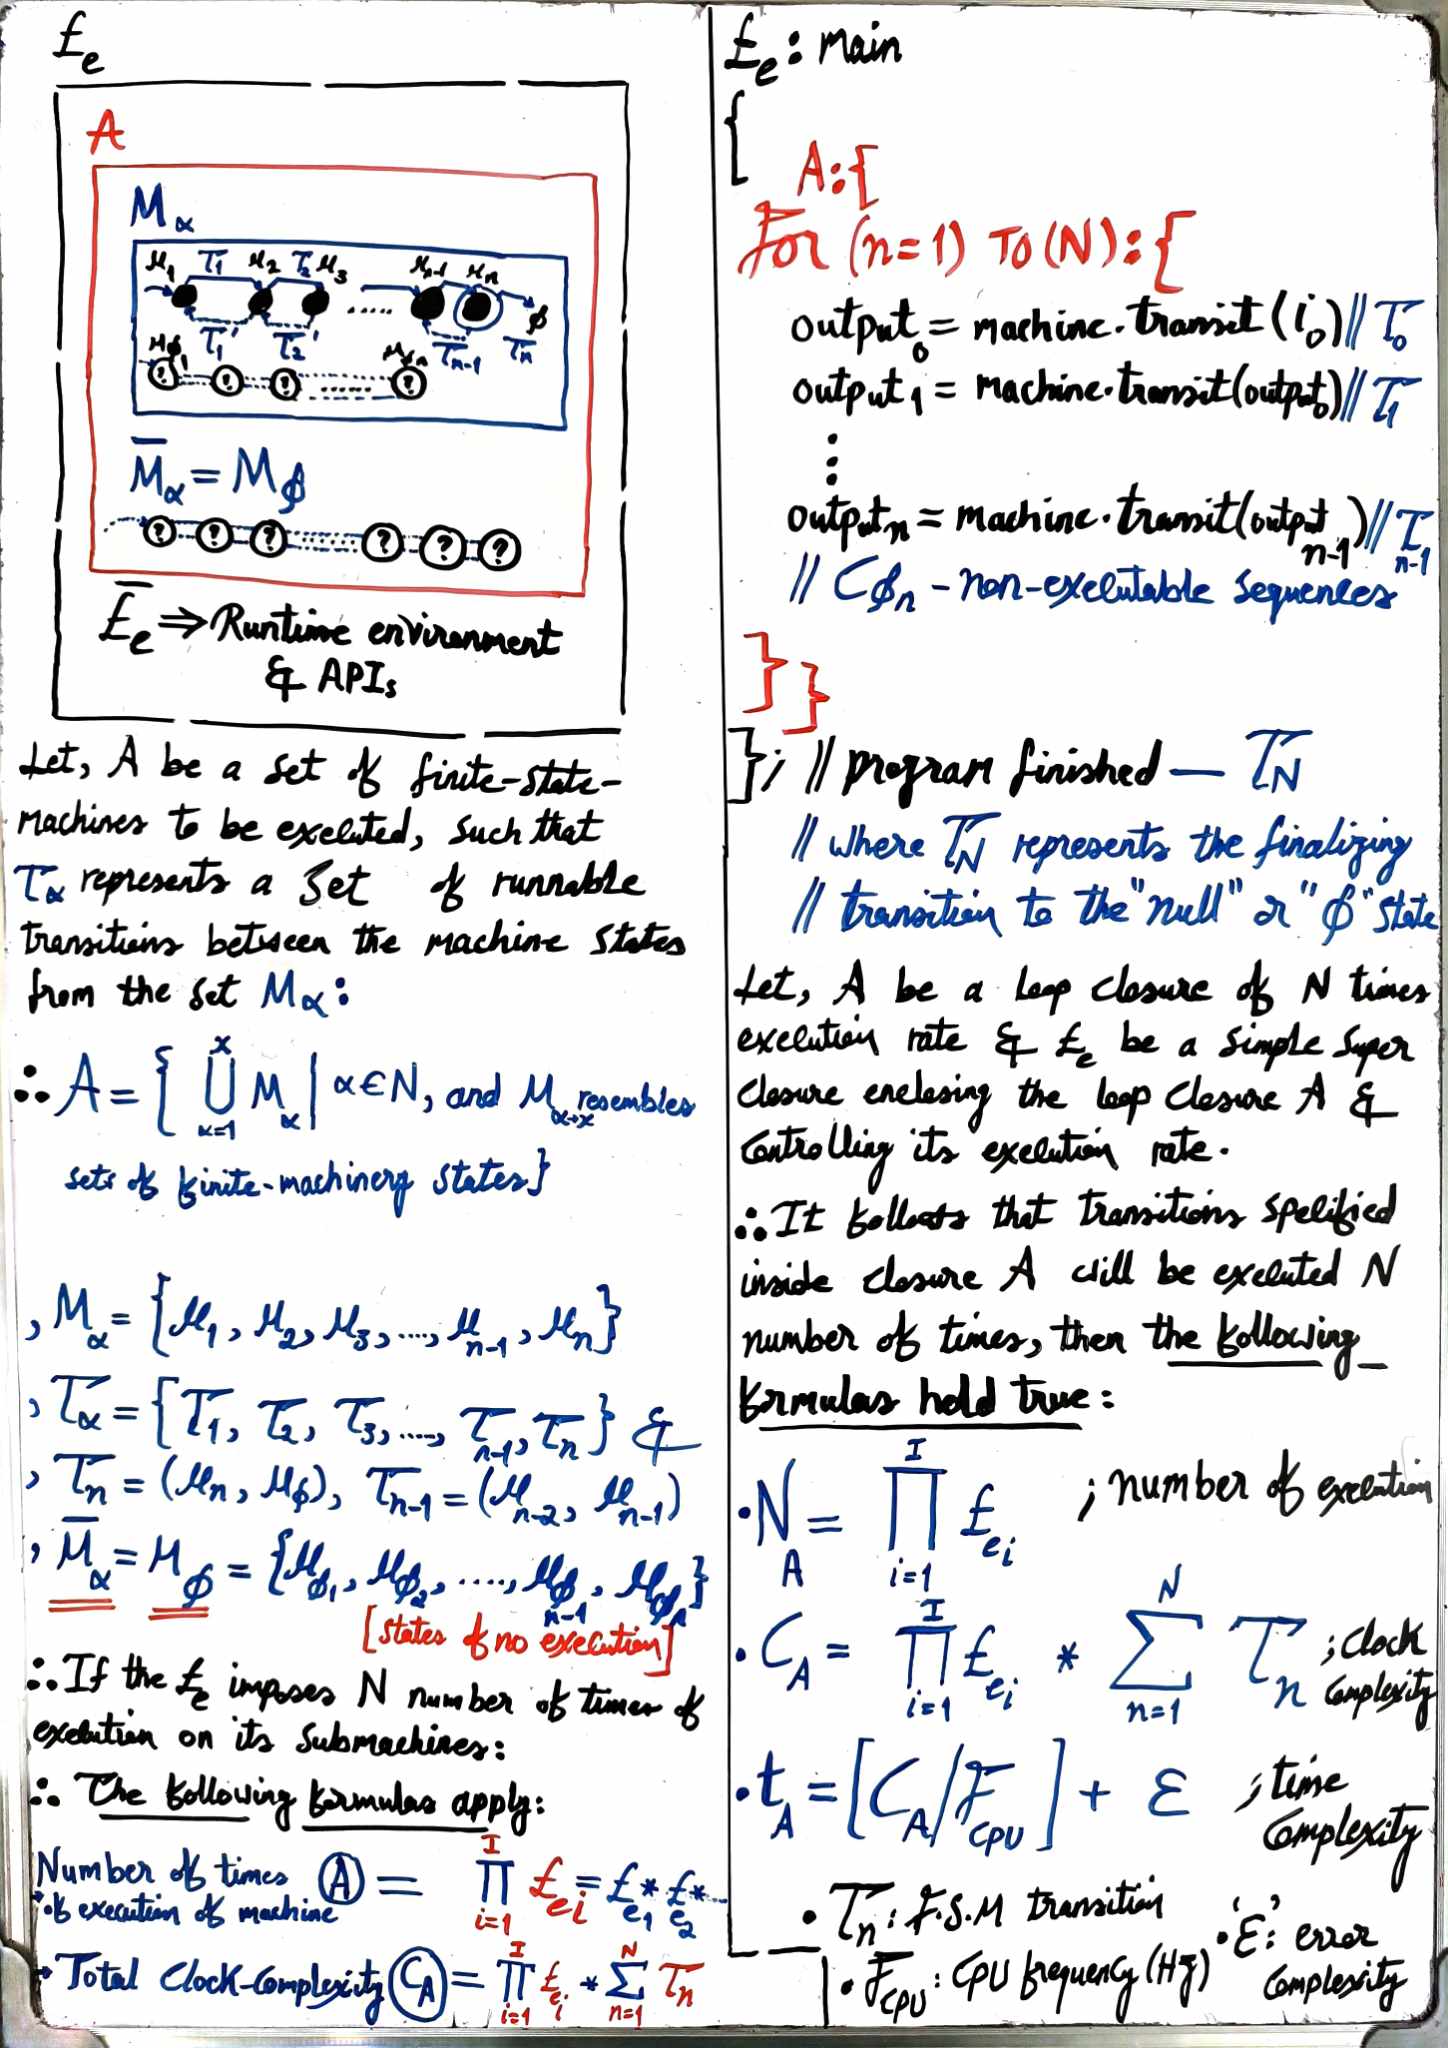 £e
A
Mα
μ1 T1 μ2 T2 μ3 μn-1 μn
..... φ
T1' T2' Tn-1 Tn
μφ1 μφn
? ? ? ...... ?
M̅α = Mφ
? ? ? ? ? ?
£̅e ⇒ Runtime environment
& APIs
Let, A be a set of finite-state-
machines to be executed, such that
Tα represents a set of runnable
transitions between the machine states
from the set Mα:
∴ A = { ⋃ x α=1 Mα | α ∈ N, and Mα→x resembles
sets of finite-machinery states}
, Mα = {μ1, μ2, μ3, ...., μn-1, μn}
, Tα = {T1, T2, T3, ...., Tn-1, Tn} &
, Tn = (μn, μφ), Tn-1 = (μn-2, μn-1)
, M̅α = Mφ = {μφ1, μφ2, ...., μφn-1, μφn}
[states of no execution]
∴ If the £e imposes N number of times of
execution on its submachines:
∴ The following formulas apply:
Number of times of execution of machine (A) = ∏ I i=1 £ei = £e1 * £e2 * ...
Total Clock-Complexity (CA) = ∏ I i=1 £ei * ∑ N n=1 Tn
£e: main
{
A:{
For (n=1) TO (N):{
output0 = machine.transit(i0) // T0
output1 = machine.transit(output0) // T1
⋮
outputn = machine.transit(outputn-1) // Tn-1
// Cφn - non-executable sequences
}}
}; // program finished — TN
// where TN represents the finalizing
// transition to the "null" or "φ" state
Let, A be a loop closure of N times
execution rate & £e be a simple super
closure enclosing the loop closure A &
controlling its execution rate.
∴ It follows that transitions specified
inside closure A will be executed N
number of times, then the following
formulas hold true:
• NA = ∏ I i=1 £ei ; number of execution
• CA = ∏ I i=1 £ei * ∑ N n=1 Tn ; clock complexity
• tA = [CA/FCPU] + ε ; time complexity
• Tn: F.S.M transition
• 'ε': error complexity
• FCPU: CPU frequency (Hz)